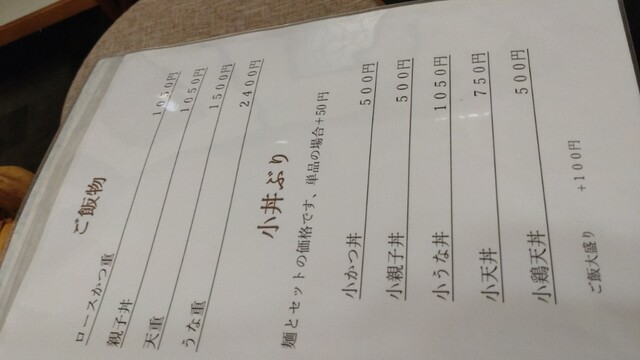 ご飯物
ロースかつ重 1050円
親子丼 1050円
天重 1500円
うな重 2400円
小丼ぶり
麺とセットの価格です、単品の場合+50円
小かつ丼 500円
小親子丼 500円
小うな丼 1050円
小天丼 750円
小鶏天丼 500円
ご飯大盛り +100円